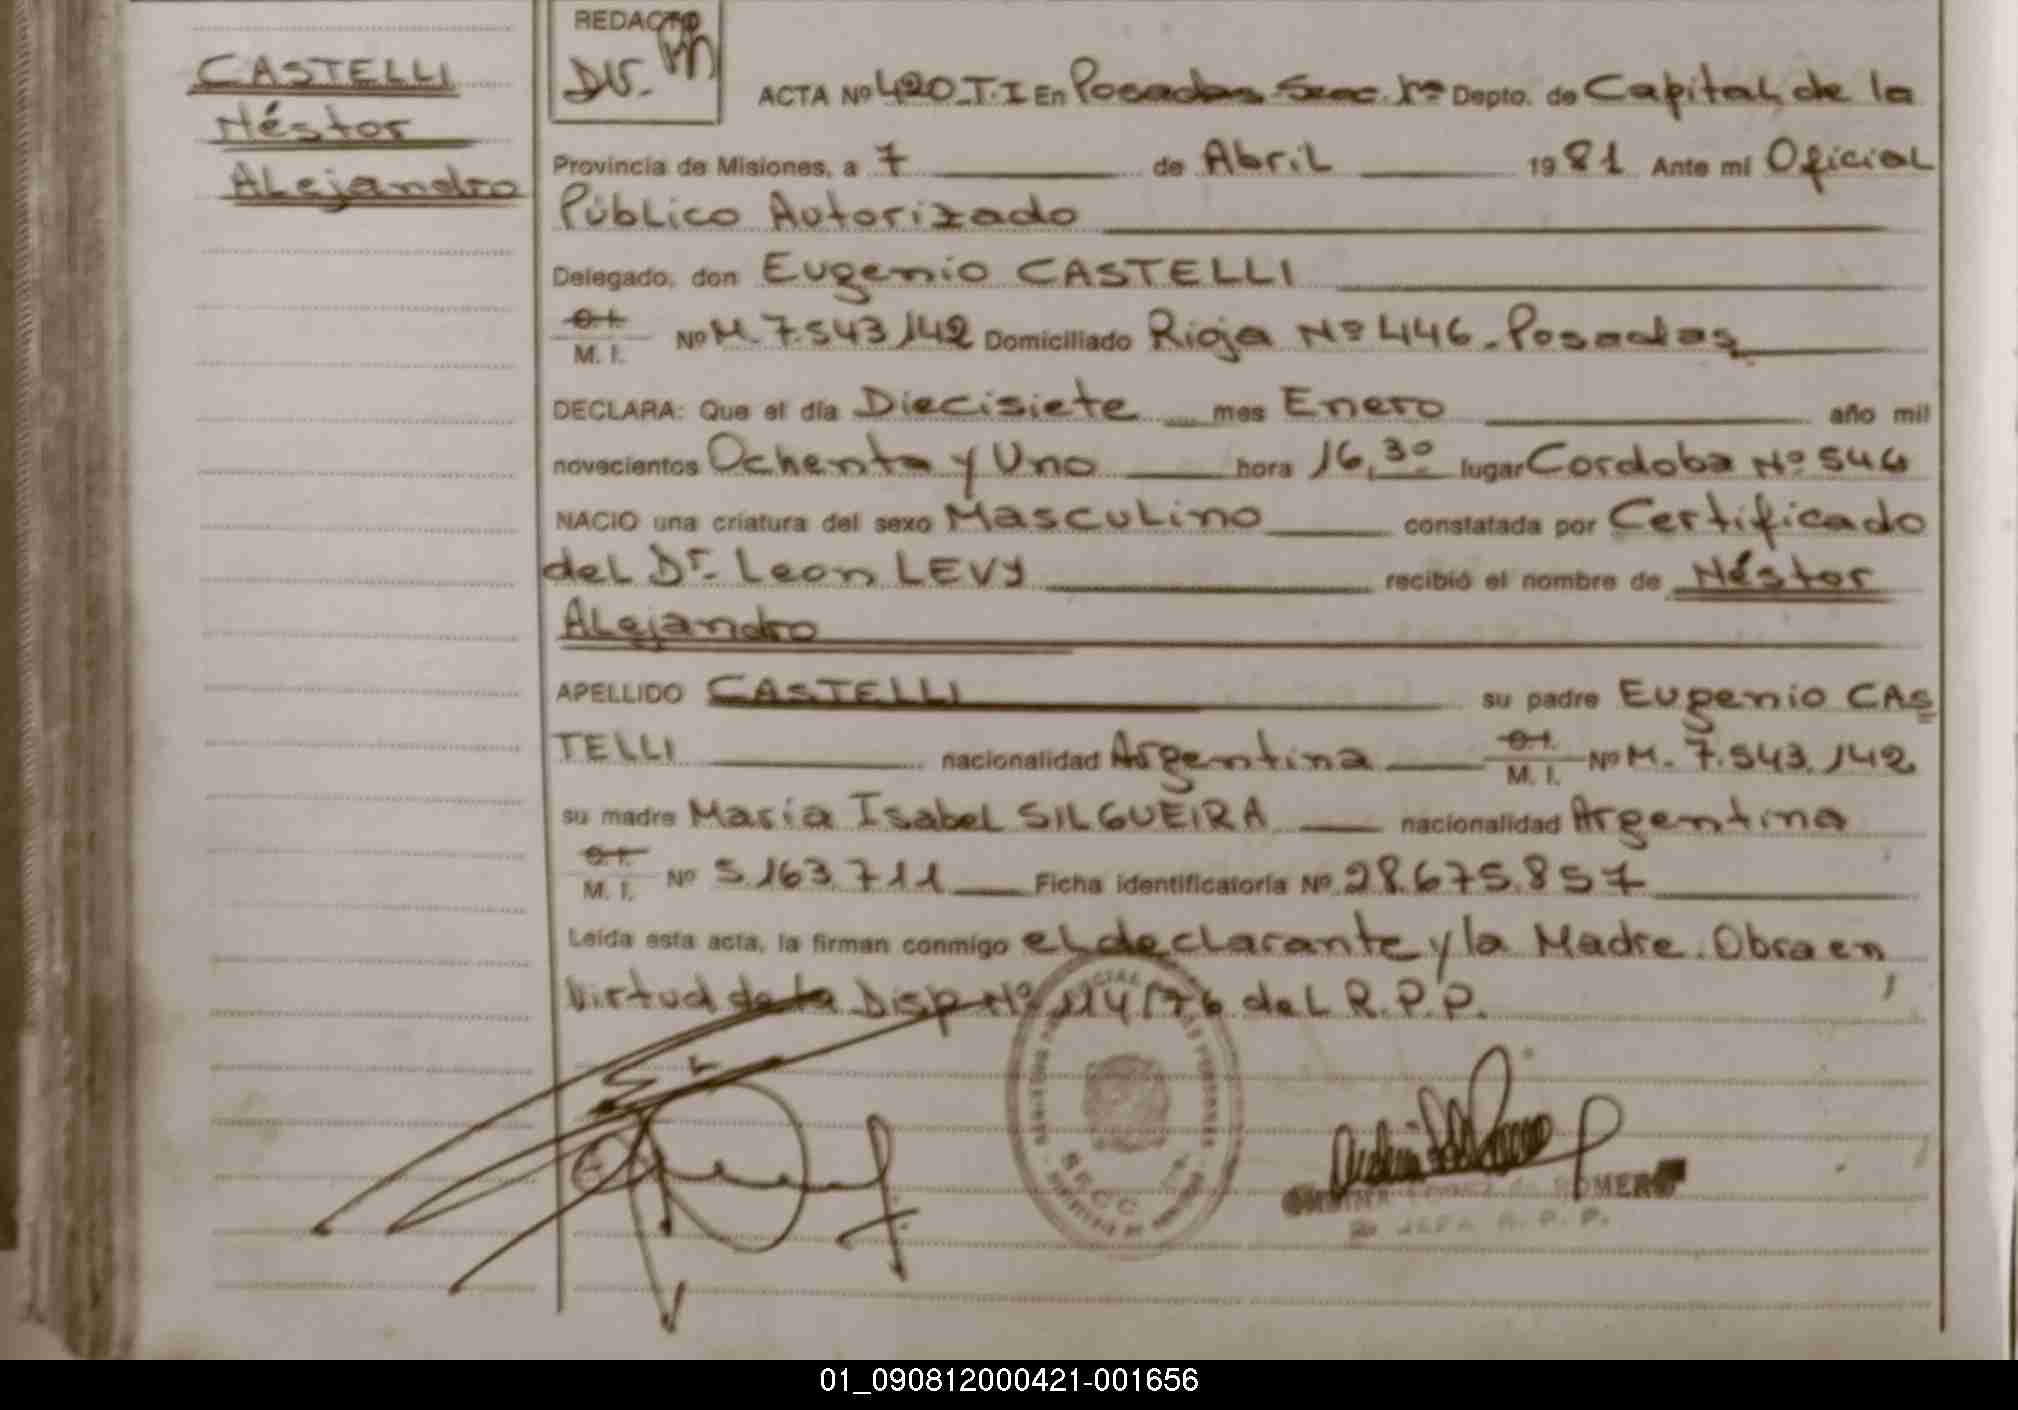 CASTELLI
Néstor
Alejandro
REDACTO
ACTA Nº 420-T.I En Posadas Secc. 1ª Depto. de Capital, de la
Provincia de Misiones, a 7 de Abril 1981 Ante mí Oficial
Público Autorizado
Delegado, don Eugenio CASTELLI
C.I.
M. I. Nº M. 7.543.142 Domiciliado Rioja Nº 446. Posadas
DECLARA: Que el día Diecisiete mes Enero año mil
novecientos Ochenta y Uno hora 16,30 lugar Cordoba Nº 546
NACIO una criatura del sexo Masculino constatada por Certificado
del Dr. Leon LEVY recibió el nombre de Néstor
Alejandro
APELLIDO CASTELLI su padre Eugenio CAS
TELLI nacionalidad Argentina C.I.
M. I. Nº M. 7.543.142
su madre María Isabel SILGUEIRA nacionalidad Argentina
C.I.
M. I. Nº 5.163.711 Ficha identificatoria Nº 28.675.857
Leída esta acta, la firman conmigo el declarante y la Madre. Obra en
Virtud de la Disp Nº 114/76 del R.P.P.
SECC
ROMERO
JEFA R. P. P.
01_090812000421-001656